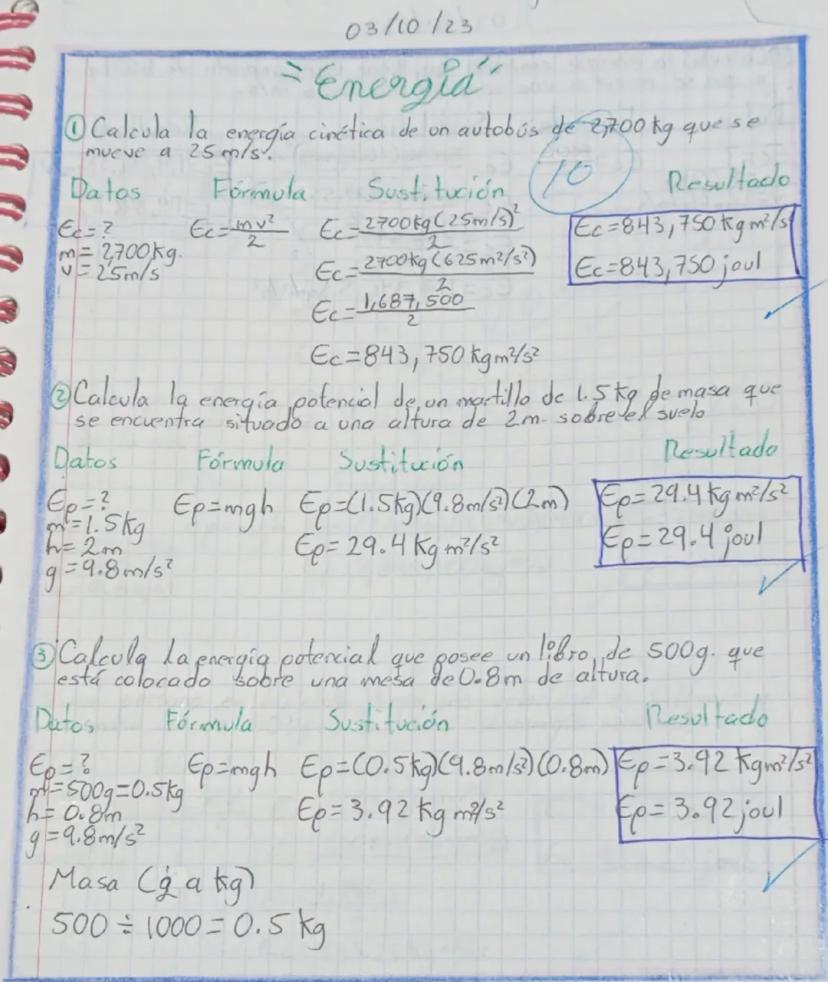 03/10/23
"Energía"
① Calcula la energía cinética de un autobús de 2,700 kg que se
mueve a 25 m/s.
10
Datos Fórmula Sustitución Resultado
Ec=?
m=2,700kg.
v=25m/s
Ec=mv²/2
Ec=2700kg(25m/s)²/2
Ec=2700kg(625m²/s²)/2
Ec=1,687,500/2
Ec=843,750 kgm²/s²
Ec=843,750 kgm²/s²
Ec=843,750 joul
② Calcula la energía potencial de un martillo de 1.5 kg de masa que
se encuentra situado a una altura de 2m. sobre el suelo
Datos Fórmula Sustitución Resultado
Ep=?
m=1.5kg
h=2m
g=9.8m/s²
Ep=mgh
Ep=(1.5kg)(9.8m/s²)(2m)
Ep=29.4 Kg m²/s²
Ep=29.4 kg m²/s²
Ep=29.4 joul
③ Calcula la energía potencial que posee un libro de 500g. que
está colocado sobre una mesa de 0.8m de altura.
Datos Fórmula Sustitución Resultado
Ep=?
m=500g=0.5kg
h=0.8m
g=9.8m/s²
Ep=mgh
Ep=(0.5kg)(9.8m/s²)(0.8m)
Ep=3.92 Kg m²/s²
Ep=3.92 Kgm²/s²
Ep=3.92 joul
Masa (g a kg)
500÷1000=0.5 kg